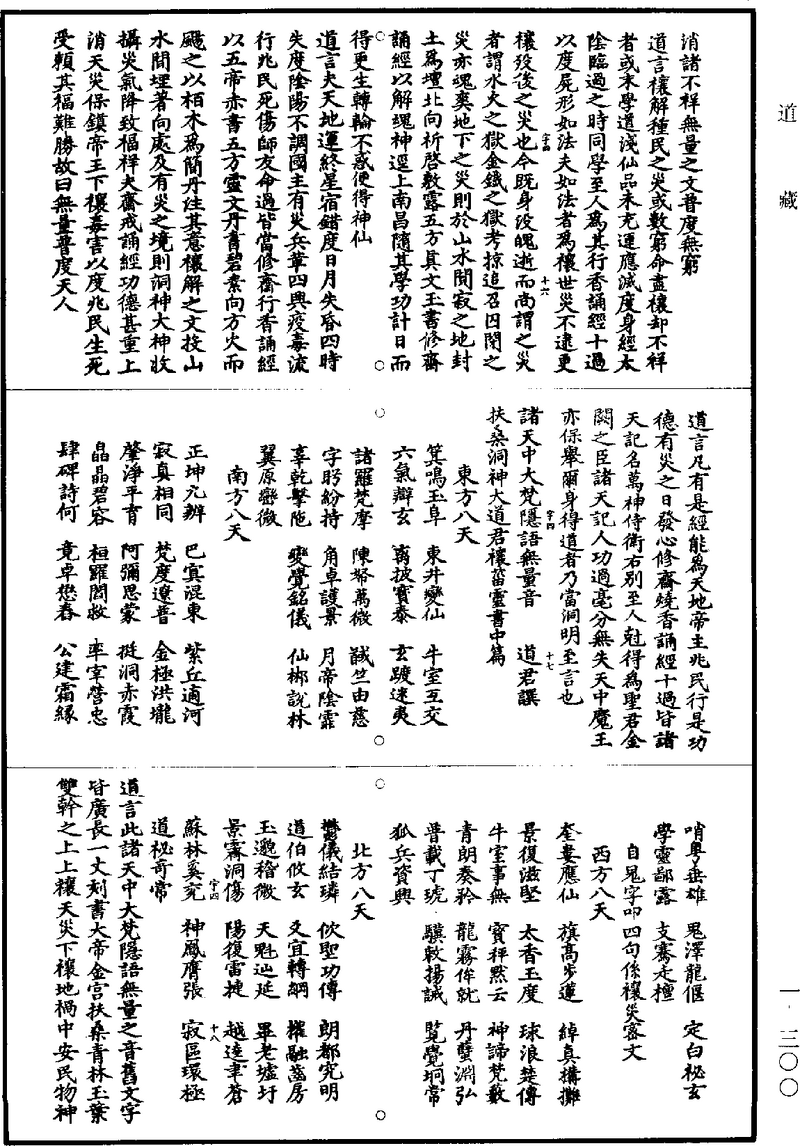 道藏
消諸不祥無量之文普度無窮
道言禳解種民之災或數窮命盡禳却不祥
者或末學道淺仙品未充運應滅度身經太
陰臨過之時同學至人為其行香誦經十過
以度屍形如法夫如法者為禳世災不逮更
禳歿後之災也今既身沒魄逝而尚謂之災
者謂水火之獄金鐵之獄考掠追召囚閉之
災亦魂爽地下之災則於山水閒寂之地封
土為壇北向祈啓敷露五方真文玉書修齋
誦經以解瑰神逕上南昌隨其學功計日而
得更生轉輪不惑便得神仙
道言夫天地運終星宿錯度日月失昏四時
失度陰陽不調國主有災兵革四興疫毒流
行兆民死傷師友命過皆當修齋行香誦經
以五帝赤書五方靈文丹書碧素向方火而
颺之以栢木為簡丹注其意禳解之文投山
水閒埋著向處及有災之境則洞神大神收
攝災氣降致福祥夫齋戒誦經功德甚重上
消天災保鎮帝王下禳毒害以度兆民生死
受賴其福難勝故曰無量普度天人
道言凡有是經能為天地帝主兆民行是功
德有災之日發心修齋燒香誦經十過皆諸
天記名萬神侍衛右別至人尅得為聖君金
闕之臣諸天記人功過毫分無失天中魔王
亦保舉爾身得道者乃當洞明至言也
諸天中大梵隱語無量音 道君譔
扶桑洞神大道君禳菑靈書中篇
東方八天
箕鳴玉阜 東井變仙 牛室互交
六氣辯玄 离披寶泰 玄踱迷夷
諸羅梵摩 陳帑萬微 諴竺由慈
字盻紛持 角卓護景 月帝陰霏
辜乾擊陁 變覺銘儀 仙郴說林
翼原巒微
南方八天
正坤亢辨 巴寅混東 紫丘適河
寂真相同 梵度遼普 金極洪壠
肇淨平育 阿彌思蒙 挺洞赤霞
晶晶碧容 桓羅閻救 率宰營忠
肆碑詩何 竟卓懋春 公建霜緣
哨粤垂雄 鬼澤龍偃 定白祕玄
學靈鄙露 支騫走檀
自鬼字叩四句係禳災密文
西方八天
奎婁應仙 旗高步蓮 綽真構攤
景復滋堅 太香玉度 球浪楚傳
牛室事無 寶秤黙云 神諦梵數
青朗奏矜 龍霧侔就 丹蠥淵弘
普載丁琥 驥敕揚誠 覽覺坰常
狐兵資興
北方八天
鬱儀結璘 佽聖功傳 朗都究明
道伯攸玄 爻宜轉綱 㩴融蓾房
玉邈稽微 天魁辿延 畢老墟圩
景霖洞傷 陽復雷捷 越逵聿蒼
蘇林奚究 神鳳膺張 寂區環極
道祕奇常
道言此諸天中大梵隱語無量之音舊文字
皆廣長一丈刻書大帝金宫扶桑青林玉葉
雙幹之上上禳天災下禳地禍中安民物神
一·三〇〇